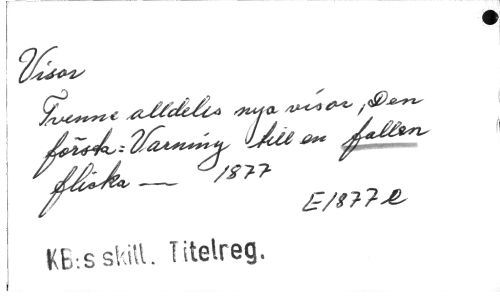 Visor
Tvenne alldeles nya visor, Den
första: Varning till en fallen
flicka — 1877
E1877e
KB:s skill. Titelreg.